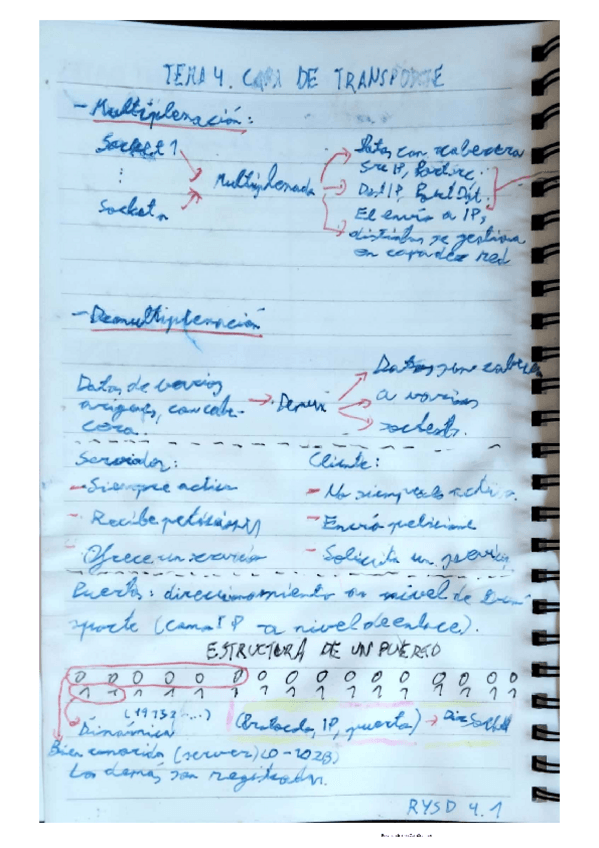 TEMA 4. CAPA DE TRANSPORTE
- Multiplexación:
Socket 1
:
Socket n
Multiplexado
Datos con cabecera
Src IP, Port Src.
Dst IP, Port Dst.
El envío a IP,
distintas se gestiona
en capa de red
- Demultiplexación
Datos de varios
orígenes, con cabe-
cera.
Demux
Datos sin cabecera
a varios
sockets.
Servidor:
- Siempre activo
- Recibe peticiones
- Ofrece un servicio
Cliente:
- No siempre activo.
- Envía peticiones
- Solicita un servicio
Puertos: direccionamiento a nivel de tran
sporte (como IP a nivel de enlace).
ESTRUCTURA DE UN PUERTO
0 0 0 0 0 0 0 0 0 0 0 0 0 0 0 0
1 1 1 1 1 1 1 1 1 1 1 1 1 1 1 1
Dinámica
(Protocolo, IP, puerto) → Dir Socket
Bien conocido (server)
Los demás son registrados.
RYSD 4.1